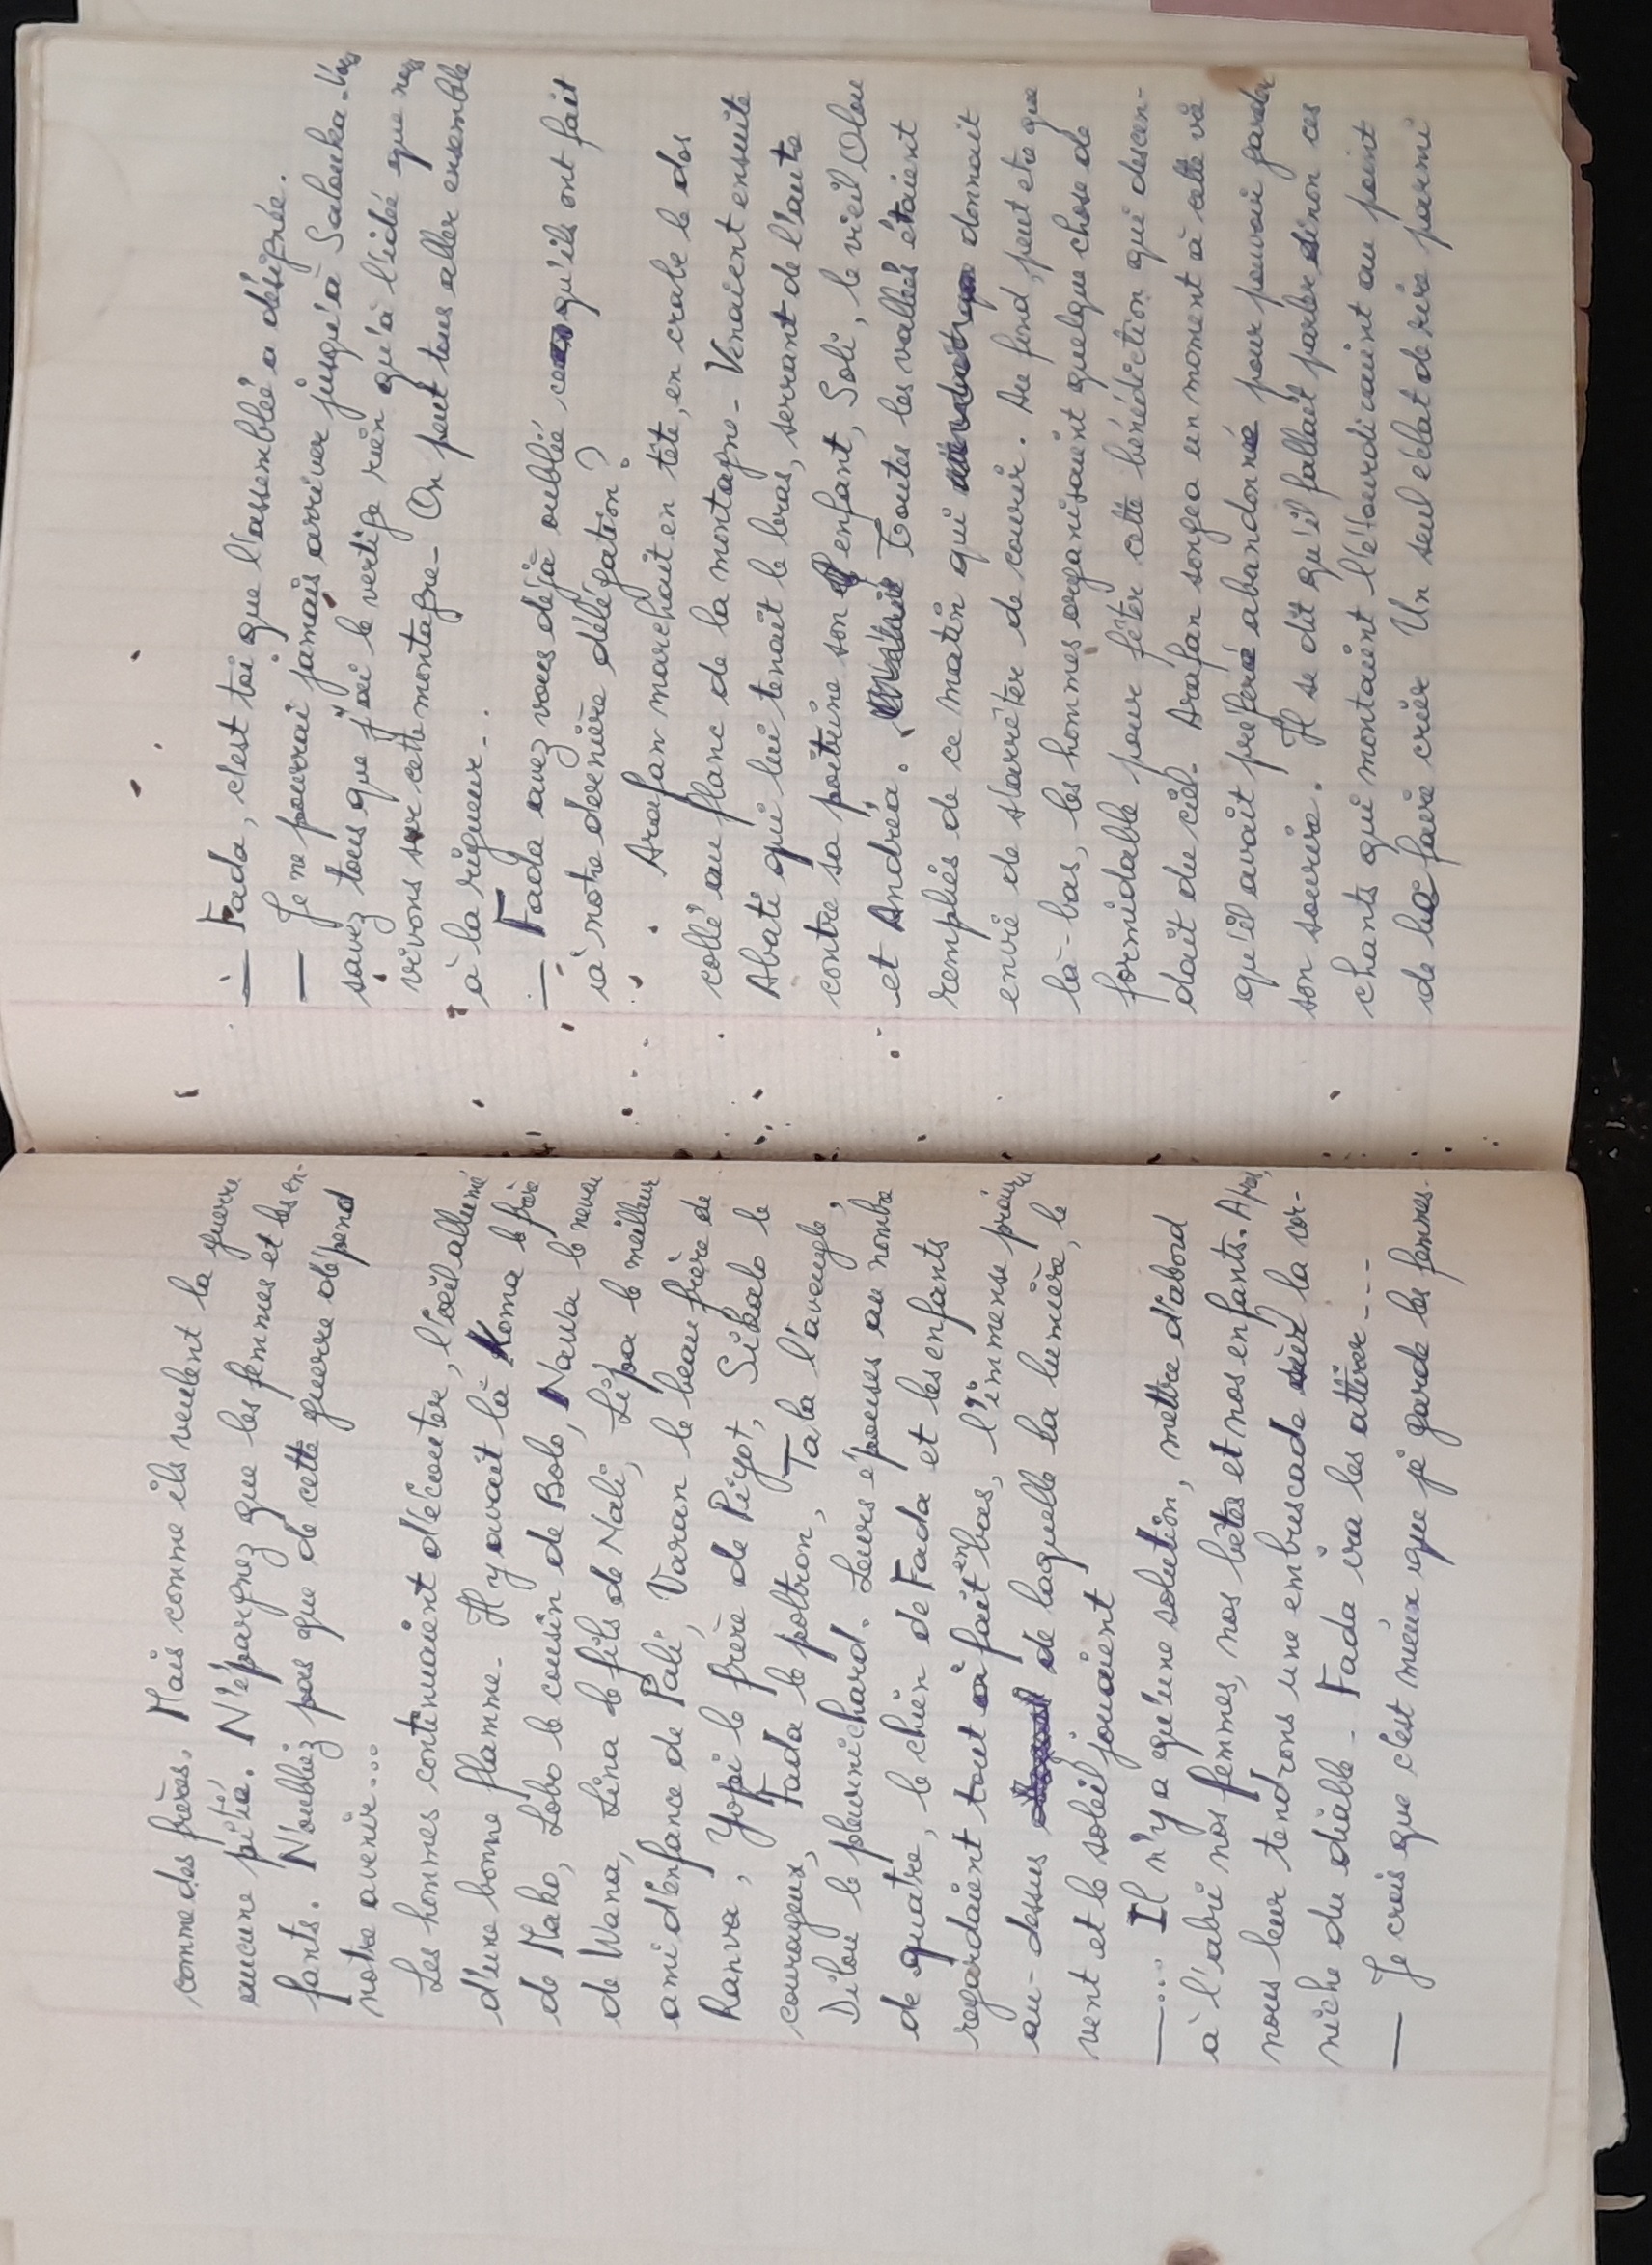 comme des frères. Mais comme ils veulent la guerre
aucune pitié. N'épargnez que les femmes et les en-
fants. N'oubliez pas que de cette guerre dépend
notre avenir...
Les hommes continuaient d'écouter, l'oeil allumé
d'une bonne flamme. Il y avait là Koma le frère
de Mako, Lobo le cousin de Bolo, Nawa le neveu
de Wana, Lina le fils de Mali, Lépa le meilleur
ami d'enfance de Pali, Varan le beau frère de
Ranva, Yopi le frère de Piyot, Sikalo le
courageux, Fada le poltron, Taba l'aveugle,
Dilou le pleurnichard. Leurs épouses au nombre
de quatre, le chien de Fada et les enfants
regardaient tout à fait en bas, l'immense prairie
au-dessus de laquelle la lumière, le
vent et le soleil jouaient
—... Il n'y a qu'une solution, mettre d'abord
à l'abri nos femmes, nos bêtes et nos enfants. Après,
nous leur tendrons une embuscade sur la cor-
niche du diable - Fada ira les attirer - - -
— Je crois que c'est mieux que je garde les femmes.
— Fada, c'est toi que l'assemblée a désignée.
— Je ne pourrai jamais arriver jusqu'à Salouka. Vous
savez tous que j'ai le vertige rien qu'à l'idée que nous
vivons sur cette montagne - On peut tous aller ensemble
à la rigueur - .
— Fada avez vous déjà oublié ce qu'ils ont fait
à notre dernière délégation ?
Arafan marchait en tête, en crabe le dos
collé au flanc de la montagne - Venaient ensuite
Abati qui lui tenait le bras, serrant de l'autre
contre sa poitrine son enfant, Soli, le vieil Olou
et Andréa. Toutes les vallées étaient
remplies de ce matin qui donnait
envie de s'arrêter de courir. Au fond, peut etre que
là-bas, les hommes organisaient quelque chose de
formidable pour fêter cette bénédiction qui descen-
dait du ciel. Arafan songea un moment à cette vie
qu'il avait préféré abandonné pour pouvoir garder
son sourire. Il se dit qu'il fallait parler sinon ces
chants qui montaient l'étourdiraient au point
de le faire crier Un seul éclat de rire parmi